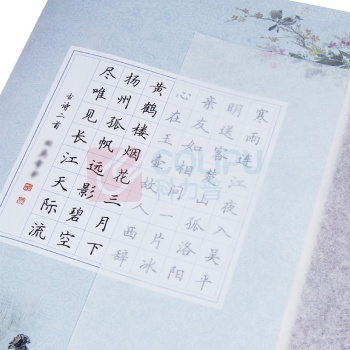 寒雨连江夜入吴平
明送客楚山孤洛阳
亲友如相问一片冰
心在玉壶故人西辞
黄鹤楼烟花三月下
扬州孤帆远影碧空
尽唯见长江天际流
古诗二首
COLIPU
科力普